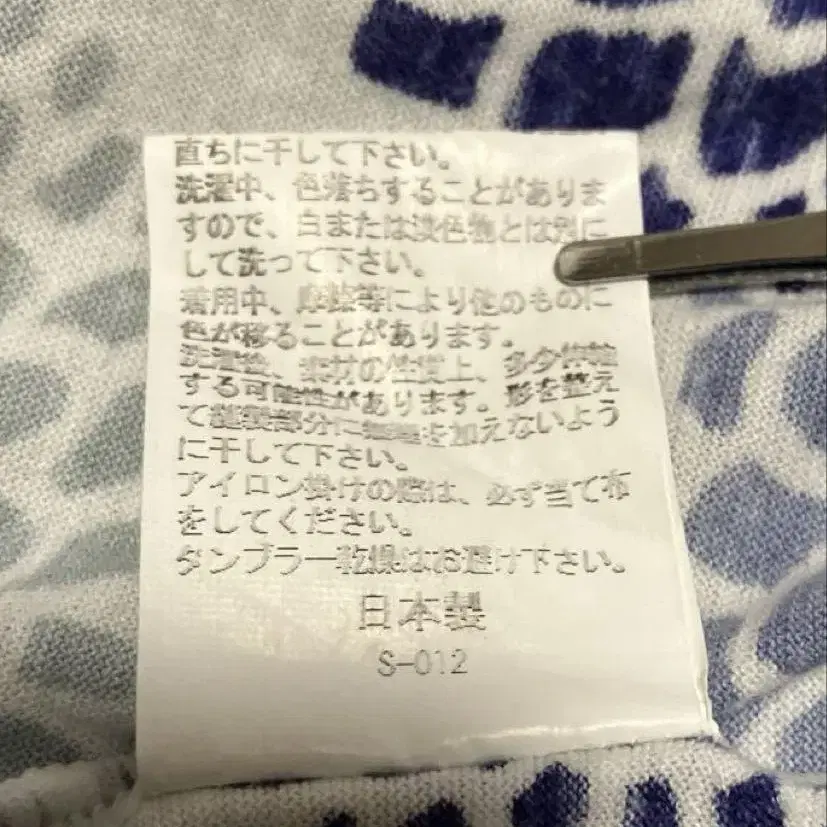 直ちに干して下さい。
洗濯中、色落ちすることがありま
すので、白または淡色物とは別に
して洗って下さい。
着用中、摩擦等により他のものに
色が移ることがあります。
洗濯後、素材の性質上、多少伸縮
する可能性があります。形を整え
て縫製部分に無理を加えないよう
に干して下さい。
アイロン掛けの際は、必ず当て布
をしてください。
タンブラー乾燥はお避け下さい。
日本製
S-012